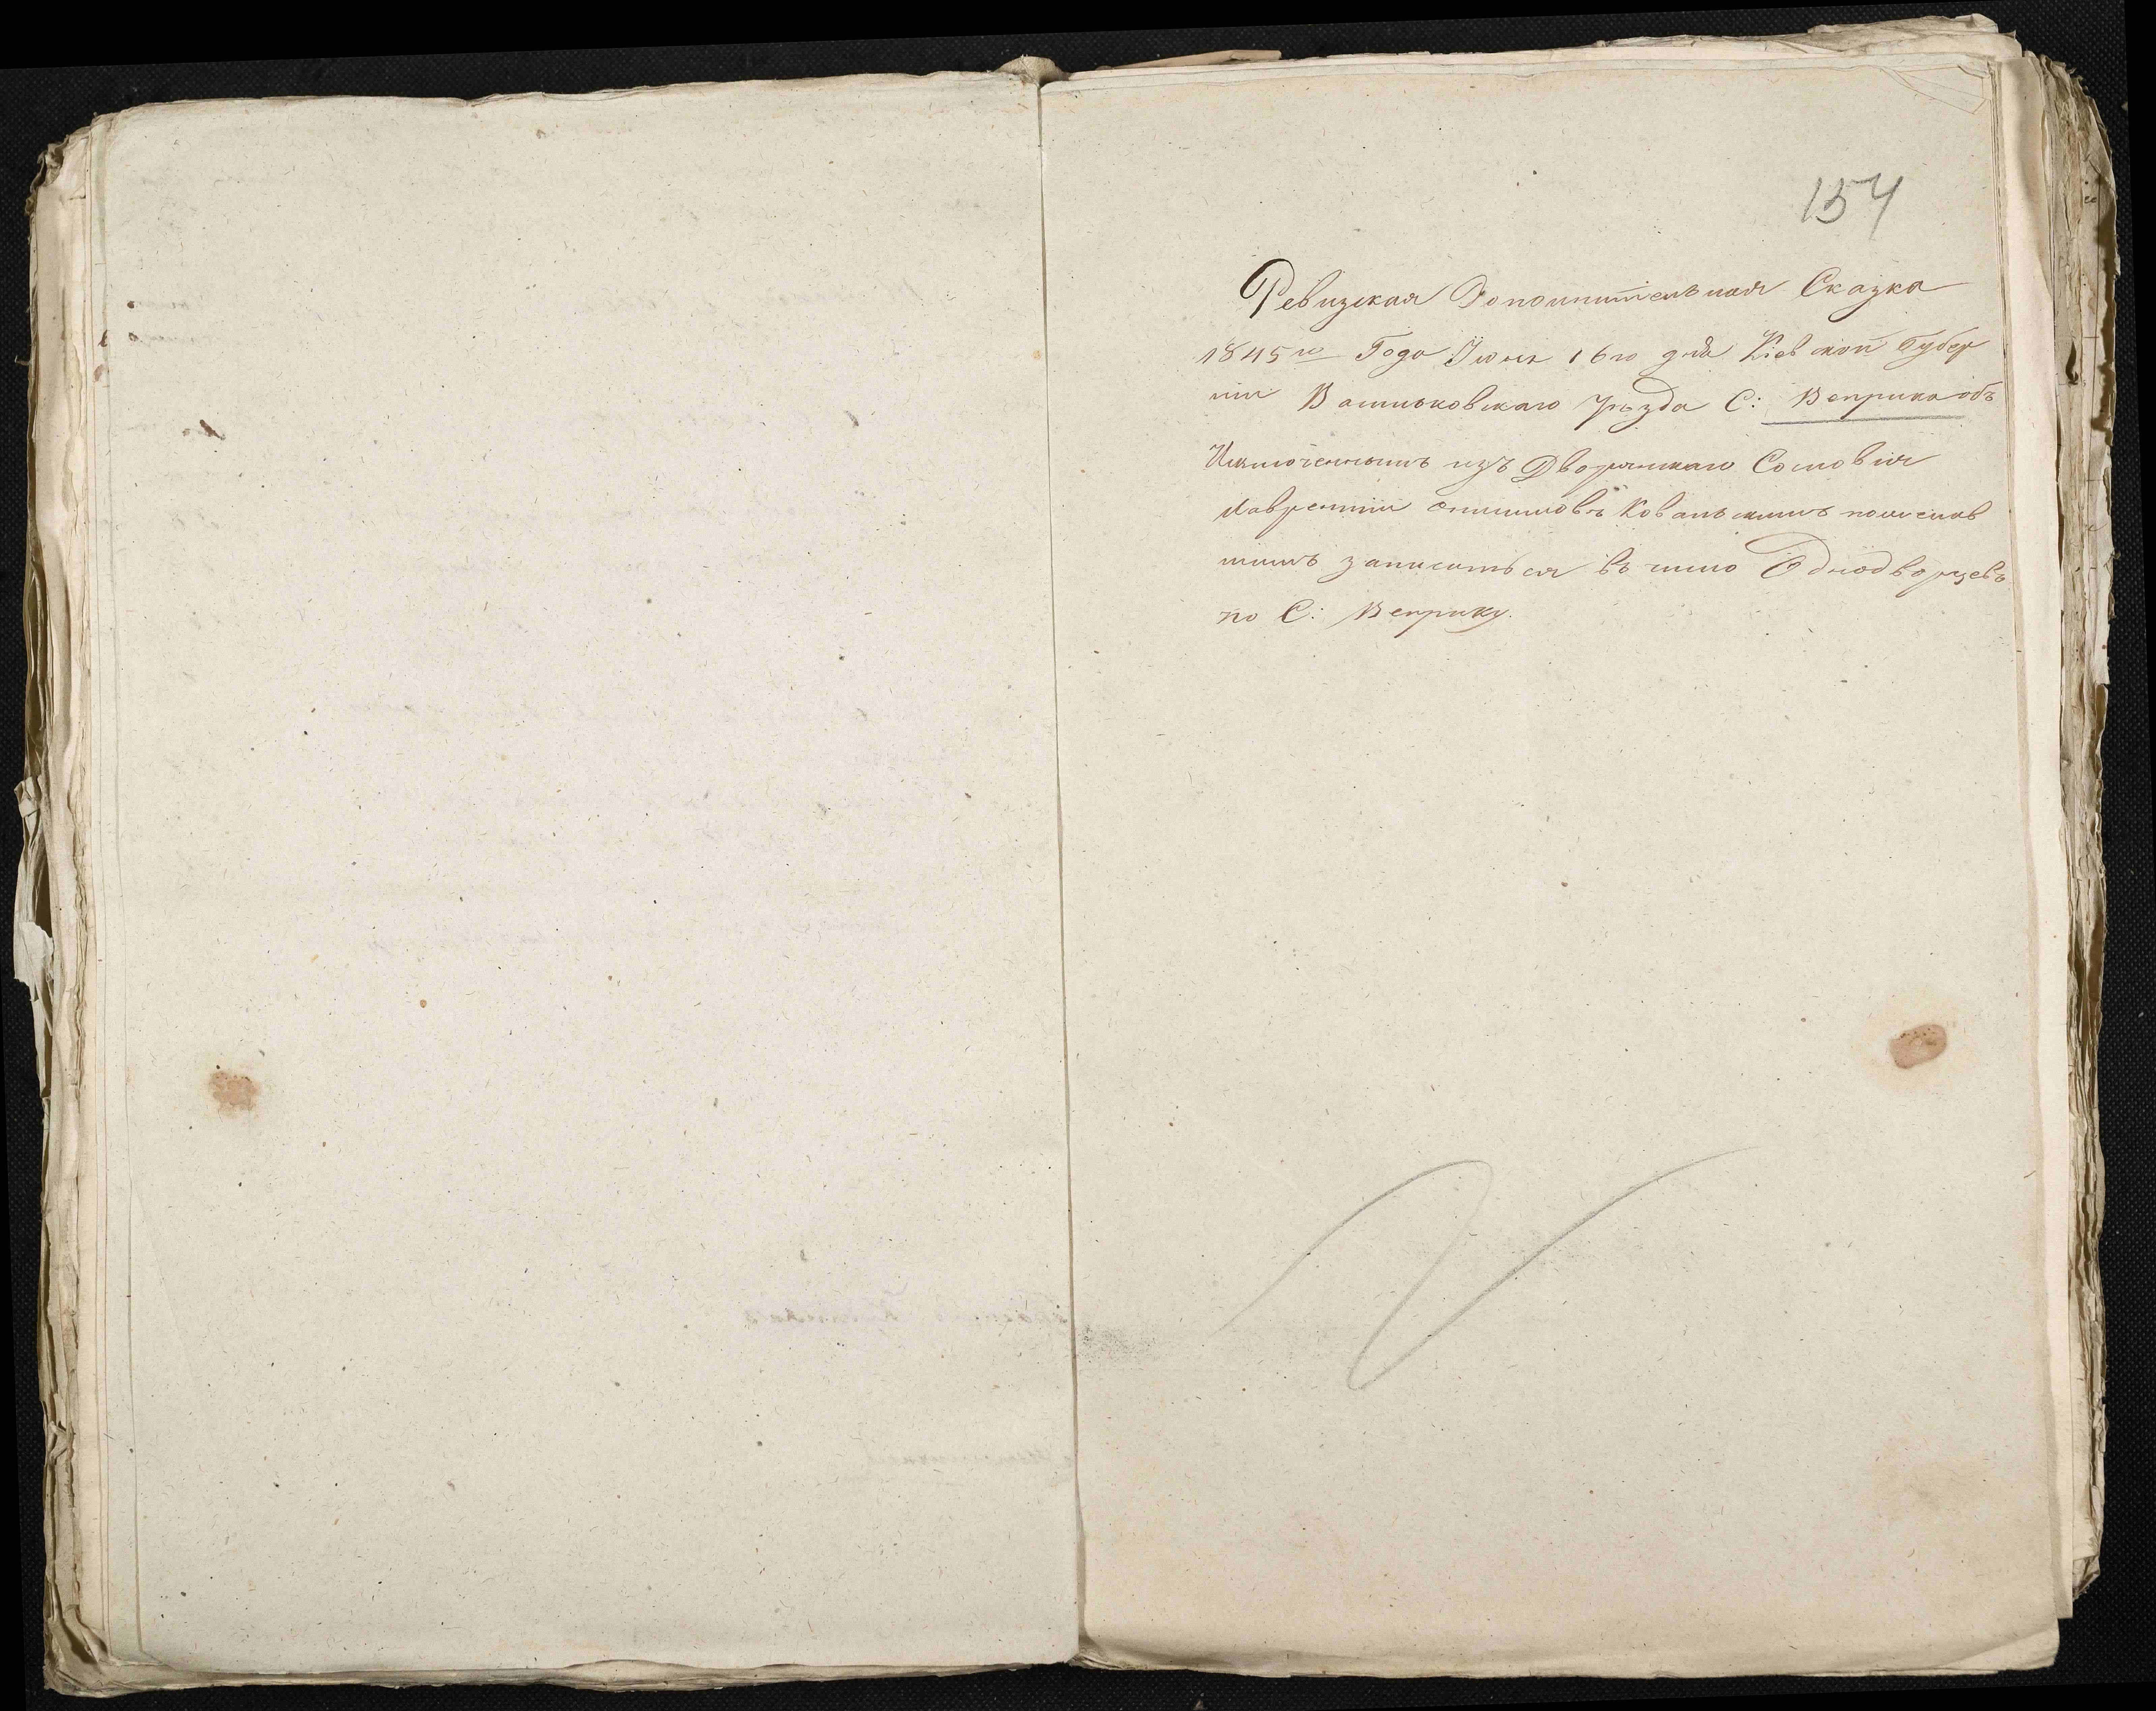 154
Ревизская Дополнительная Сказка
1845го Года Июня 16го дня Кіевской Губер
ніи Васильковскаго Уѣзда С: Веприка объ
Исключенномъ изъ Дворянскаго Сословія
Лаврентіи Ковальскимъ пожелав
шимъ записаться въ число Однодворцевъ
по С: Веприку.